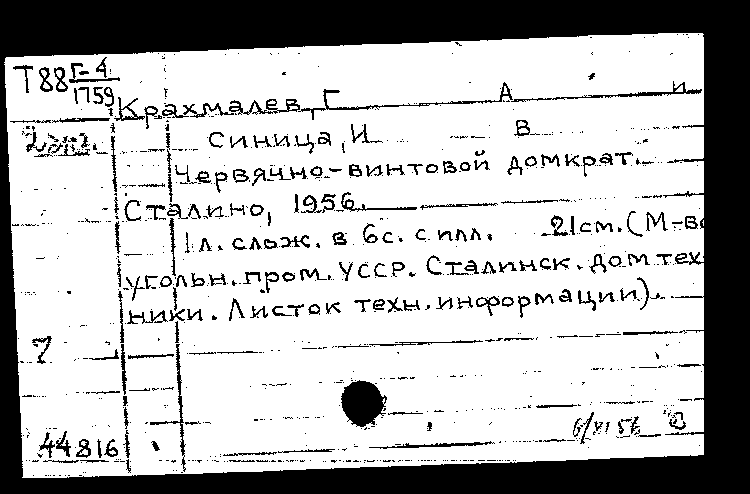 Т88 Г-4
1759
Крахмалев, Г А и
2 экз.
Синица, И В
Червячно-винтовой домкрат.
Сталино, 1956.
1 л. слож. в 6 с. с илл. 21 см. (М-во
угольн. пром. УССР. Сталинск. дом тех-
ники. Листок техн. информации).
7
44816
6/XI 56